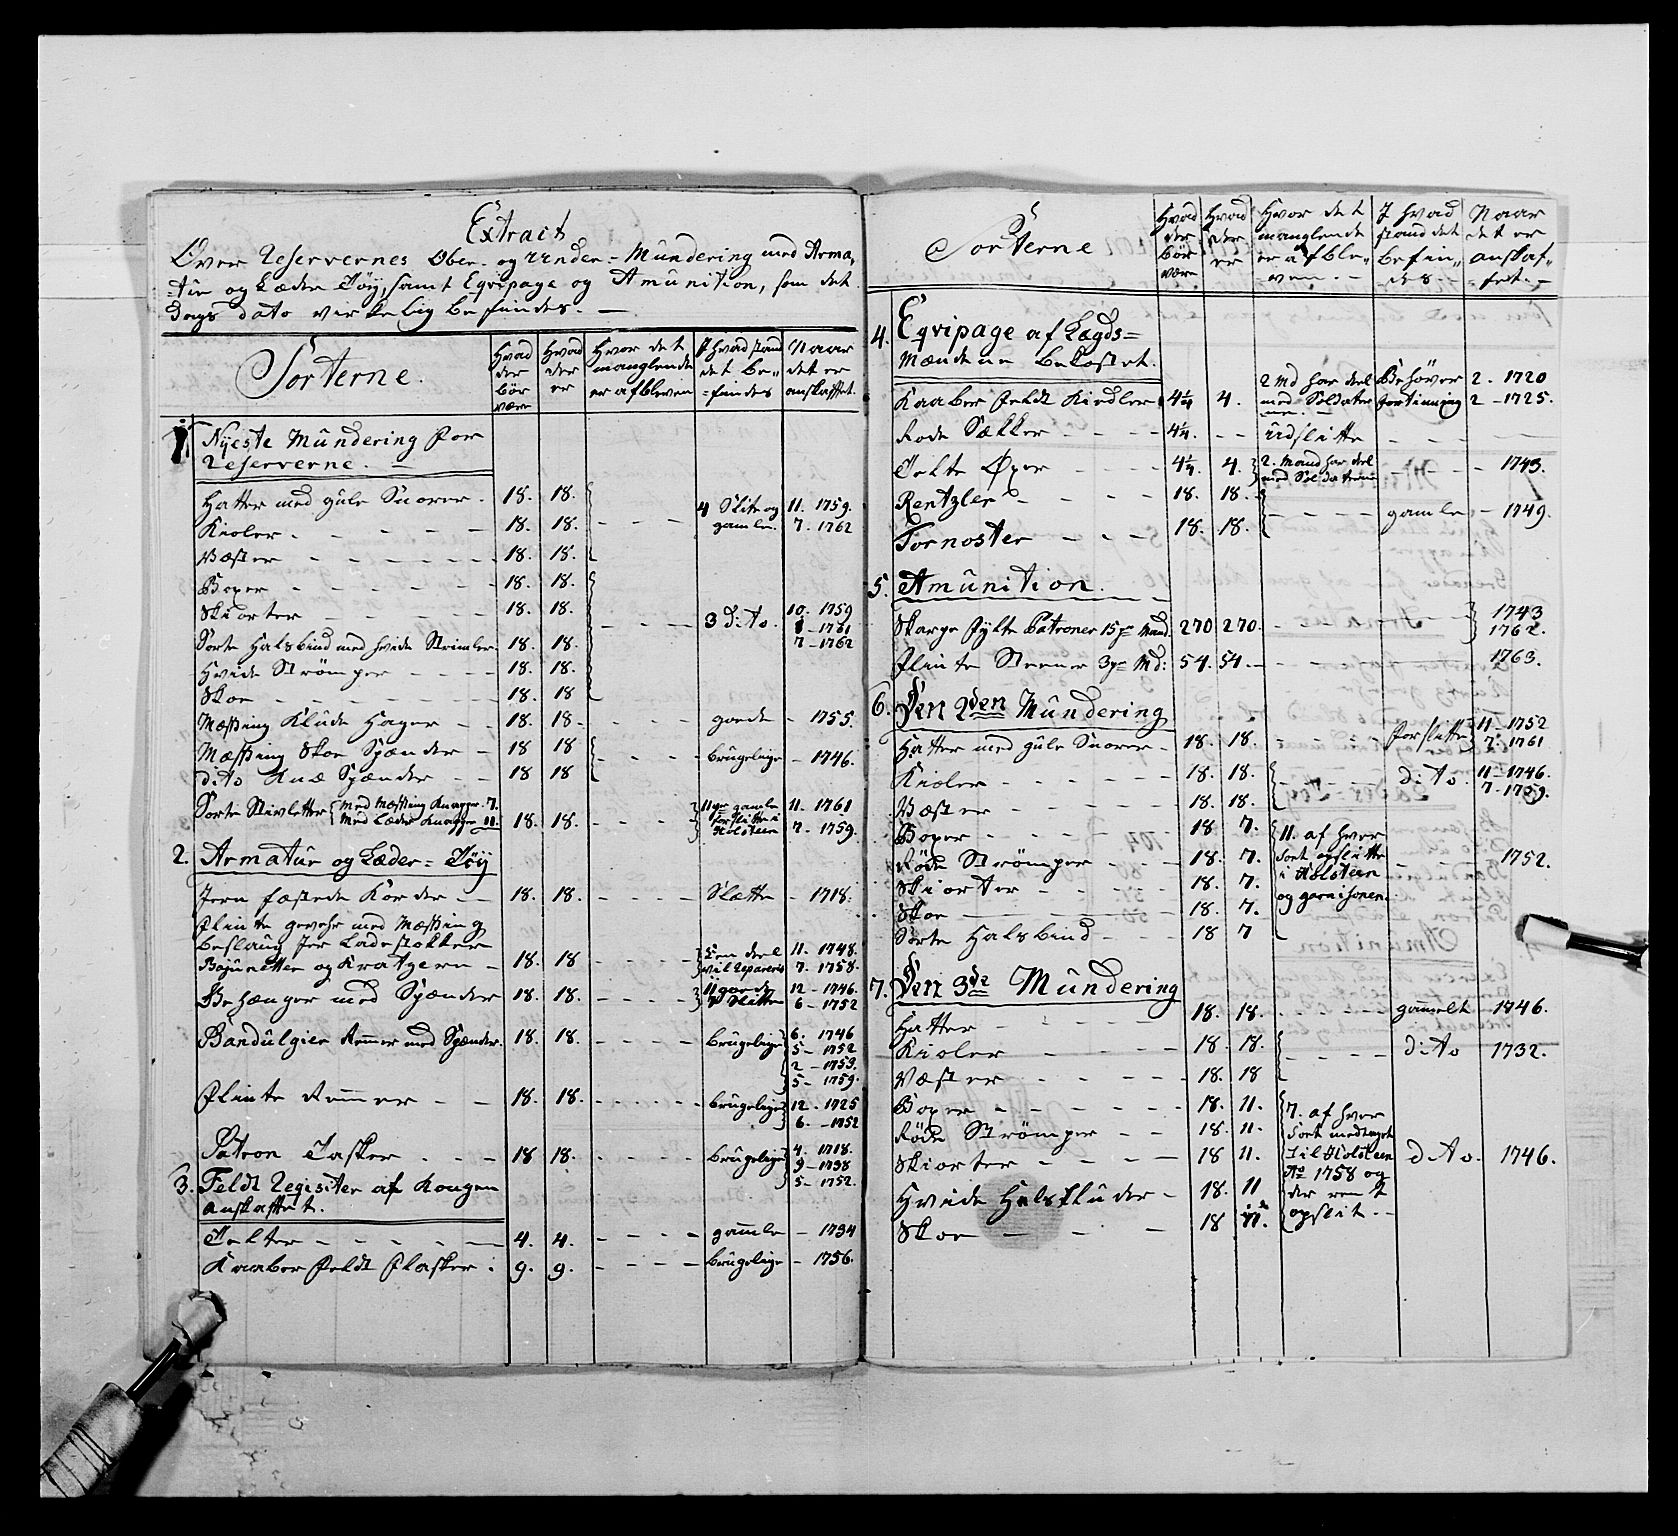 Extract
Over Reservernes Ober- og Under-Mundering med Arma-
tur og Læder Tøy, samt Eqvipage og Amunition, som det
Dags dato virkelig befindes. —
Sorterne.
Hvad der bør være
Hvad der er
Hvor det manglende er afbleven
I hvad stand det be-findes
Naar det er anskaffet.
1. Nyeste Mundering for
Reserverne. —
Hatter med gule Snorer. 18. 18.
Kioler 18. 18. 4 Slite og gamle. 11. 1759. 7. 1762
Væster 18. 18.
Boxer 18. 18.
Skiorter 18. 18. 3 dito. 10. 1759 1 - 1761 7 - 1762
Sorte Halsbind med hvide Strimler 18. 18.
Hvide Strömper 18. 18.
Skoe 18. 18
Mæssing Klude Hager 18. 18. goede 1755.
Mæssing Skoe Spænder 18 18 brugelige 1746.
dito Knæ Spænder 18 18
Sorte Stivletter med Mæssing Knapper 7. med Læder Knapper 11. 18. 18. 11 gamle forslitte i Holsteen 11. 1761 7. 1759.
2. Armatur og Læder-Tøy
Jern fæstede Korder 18. 18. Slætte 1718.
Flinte gevehr med Mæssing
beslaug Jer Ladestokker
Bajunetter og Kratzern 18. 18 Een deel vil repareris 11. 1748. 7. 1758.
Gehænger med Spænder 18. 18. 11 goede 7 Slitte 12 - 1746. 6 - 1752
Bandulgier Remmer med Spænder. 18. 18. brugelige 6. 1746 5 - 1752 2 - 1753. 5 - 1759.
Flinte Remmer 18. 18. brugelige 12. 1725 6. - 1752
Patron Tasker 18 18 brugelige 4. 1718. 9 - 1738 5 - 1752.
3. Feldt Reqisiter af Kongen
anskaffet.
Telter 4. 4. gamle 1734
Kaaber Feldt Flasker. 9. 9. brugelige 1756.
Sorterne
Hvad der bør være
Hvad der er
Hvor det manglende er afble-ven. —
I hvad stand det befin-des
Naar det er anskaf-fet. —
4. Eqvipage af Lægds-
Mændene bekostet.
Kaaber Feldt Kiedler 4½ 4. 2 Md har deel med Soldater Behøver fortinning 2. 1720 2 - 1725.
Fode Sækker 4½. Udslitte
Telte Öxer 4½. 4. 2. Mand har deel med Soldaterne 1743.
Rentzler 18. 18. gamle 1749.
Tornöster 18. 18.
5. Amunition.
Skarpe fylte Patroner 15 pr Mand. 270 270. 1743 1762.
Flinte Steener 3 pr Md: 54. 54. 1763.
6. Den 2den Mundering
Hatter med gule Snorer 18. 18. forslitte 11 - 1752 7. 1761
Kioler 18. 18. dito. 11 - 1746. 7 - 1759.
Væster 18. 18.
Boxer 18. 7. 11. af hver
Røde Strömper 18. 7. Sort opslitte 1752.
Skiorter 18. 7. i Holsteen
Skoe 18. 7. og garnisonen.
Sorte Halsbind 18 7
7. Den 3de Mundering
Hatter 18. 18. gammelt 1746.
Kioler 18. 18. dito 1732.
Væster 18. 18
Boxer 18. 11. 7. af hver
Røde Strömper 18. 11. Sort medtaget
Skiorter 18 11. Til Holsteen dito. 1746.
Ao 1758 og
Hvide Halsklüder 18. 11 der rent
Skoe 18 11. opslit. —